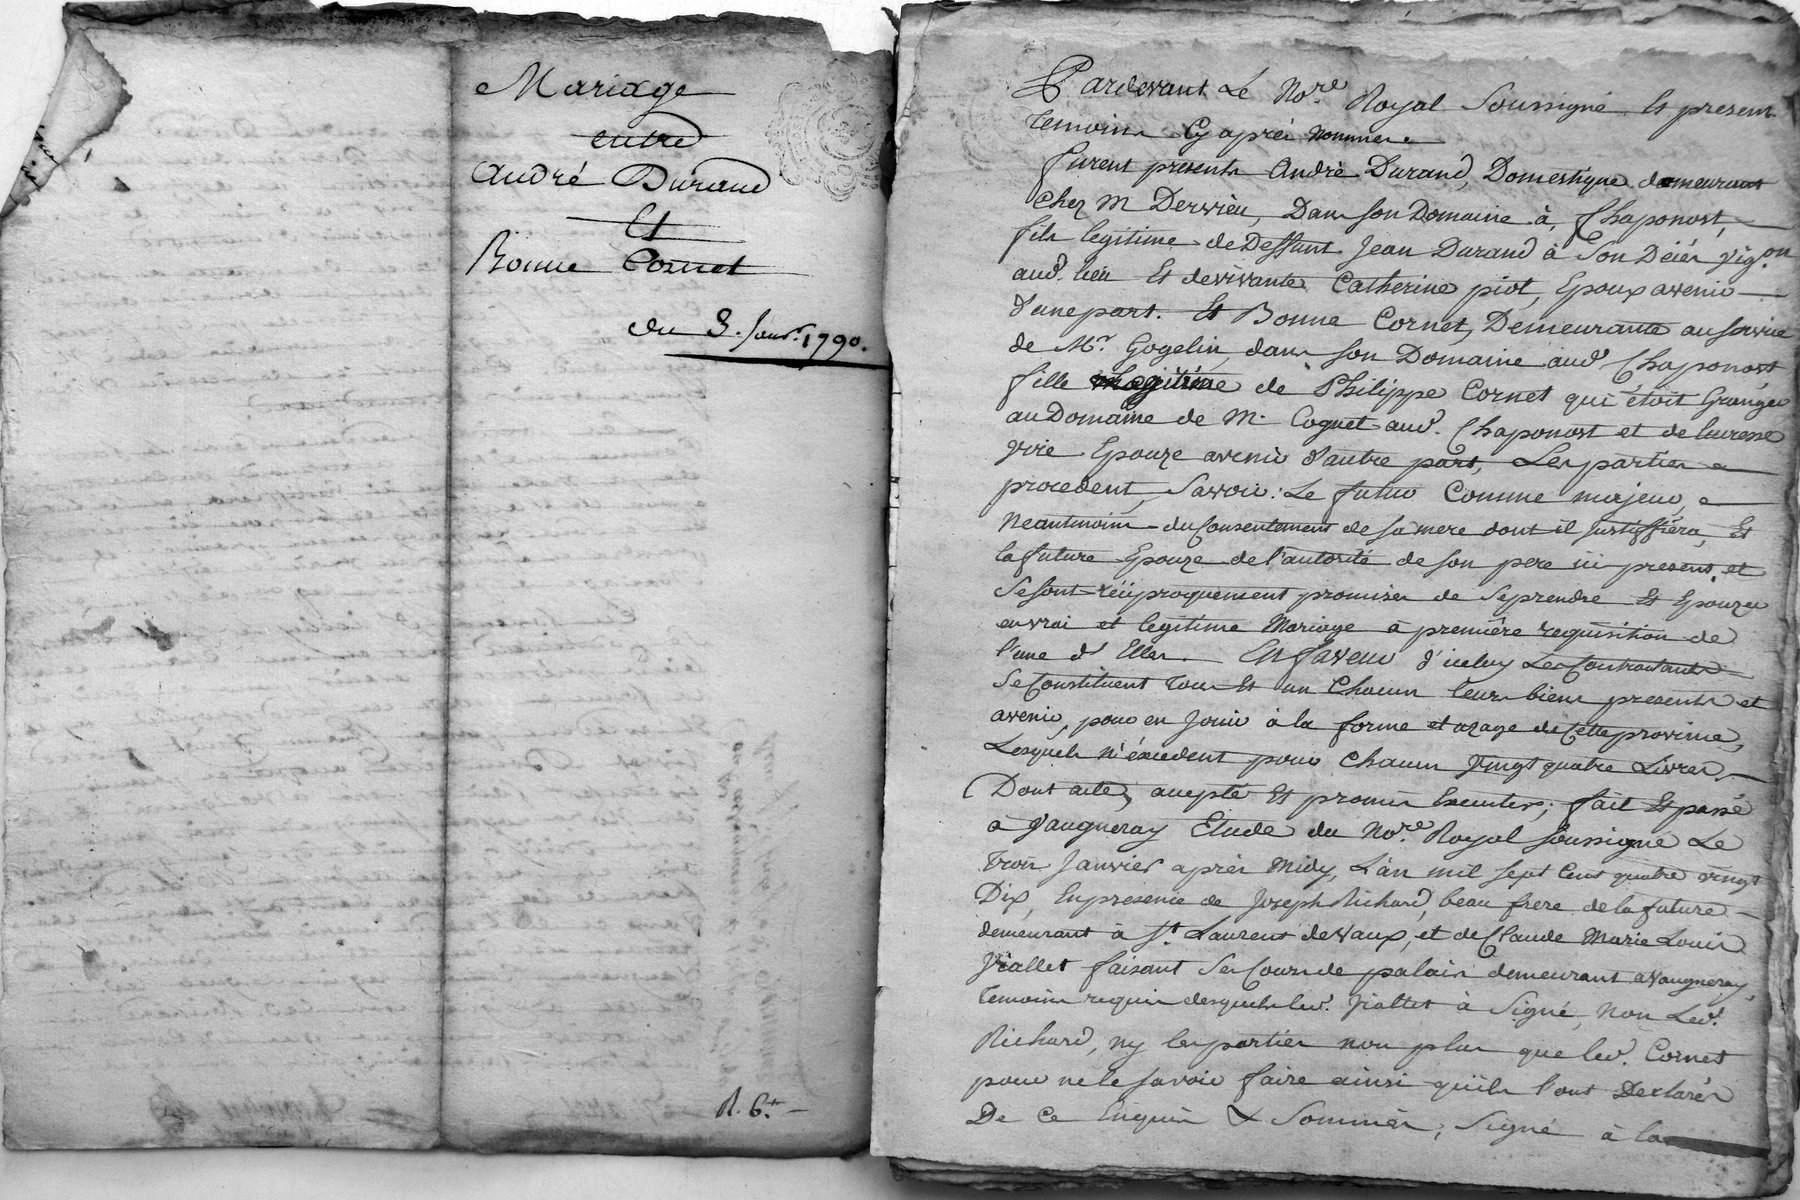 Mariage
entre
André Durand
Et
Bonne Cornet
du 3. Janv.r 1790.
R. 6.tt
Pardevant Le No.re Royal Soussigné Et present
temoins Cy aprés nommes
furent presents André Durand, Domestique demeurant
chez M Dervieu, Dans son Domaine à Chaponost,
fils legitime de Deffunt Jean Durand à Son Décés vig.on
aud. lieu Et de vivante Catherine piot, Epoux avenir
d'une part. Et Bonne Cornet, Demeurante au service
de M.r Gogelin, dans son Domaine aud. Chaponost
fille legitime de Philippe Cornet qui étoit Granger
au Domaine de M. Coquet aud. Chaponost et de
Epouze avenir d'autre part, Les parties
procedent, Savoir: Le futur Comme majeur,
Neantmoins du Consentement de sa mere dont il justiffiera, Et
la future Epouze de l'autorité de son pere ici present, et
Se sont réciproquement promises de Se prendre Et Epouzer
en vrai et legitime Mariage à première requisition de
l'une d'Elles. En faveur d'iceluy Les Contractants
Se Constituent tous Et un Chacun leurs biens presents et
avenir, pour en Jouir à la forme et uzage de Cette province,
Lesquels n'éxcedent pour Chacun Vingt quatre Livres.
Dont acte, accepté Et promis Executer; fait Et passé
à Vaugneray Etude du No.re Royal soussigné Le
trois Janvier après Midy, L'an mil sept Cent quatre vingt
Dix, En presence de Joseph Richard, beau frere de la future
demeurant à S.t Laurent de Vaux, et de Claude Marie Louis
Viallet faisant Ses Cours de palais demeurant a Vaugneray,
temoins requis desquels led. Viallet à Signé, Non Led.
Richard, ny les parties non plus que led. Cornet
pour ne le savoir faire ainsi qu'ils l'ont Declarés
De Ce Enquis & Sommés, Signé à la